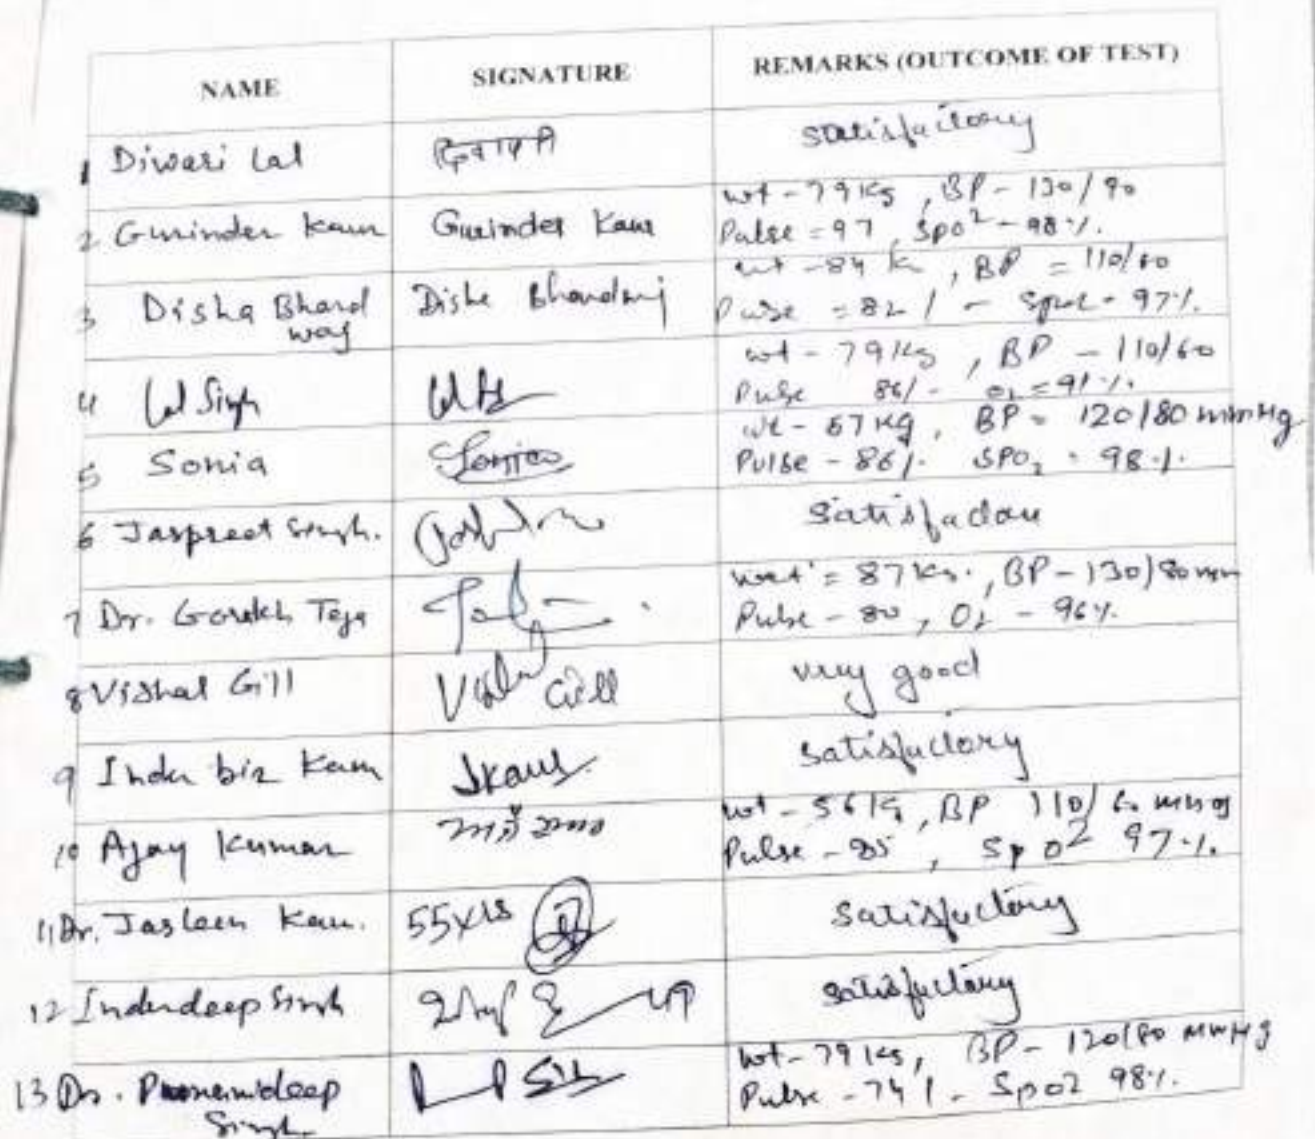 NAME SIGNATURE REMARKS (OUTCOME OF TEST)
1 Diwari Lal statisfactory
2 Gurinder Kaur Gurinder Kaur wt - 79 Kg, BP - 130/90
Pulse = 97, Spo2 - 98%.
3 Disha Bhard Disha Bhardwaj wt - 84 K, BP = 110/60
way Pulse = 82 / - Spo2 - 97%.
4 Lal Singh wt - 79 Kg, BP - 110/60
Pulse 86/- O2 = 91%.
5 Sonia Sonia wt - 67 Kg, BP - 120/80 mmHg
Pulse - 86/. SPO2 - 98%.
6 Jaspreet Singh.
7 Dr. Gorakh Teja = 87 Kg., BP - 130/80 mm
Pulse - 80, O2 - 96%.
8 Vishal Gill Vishal Gill very good
9 Indu bir Kaur JKaur satisfactory
10 Ajay Kumar wt - 56 Kg, BP 110/60 mmHg
Pulse - 85, Spo2 97%.
11 Dr. Jasleen Kaur. satisfactory
12 Inderdeep Singh satisfactory
13 Dr. wt - 79 Kg, BP - 120/80 mmHg
Singh Pulse - 74 / - Spo2 98%.